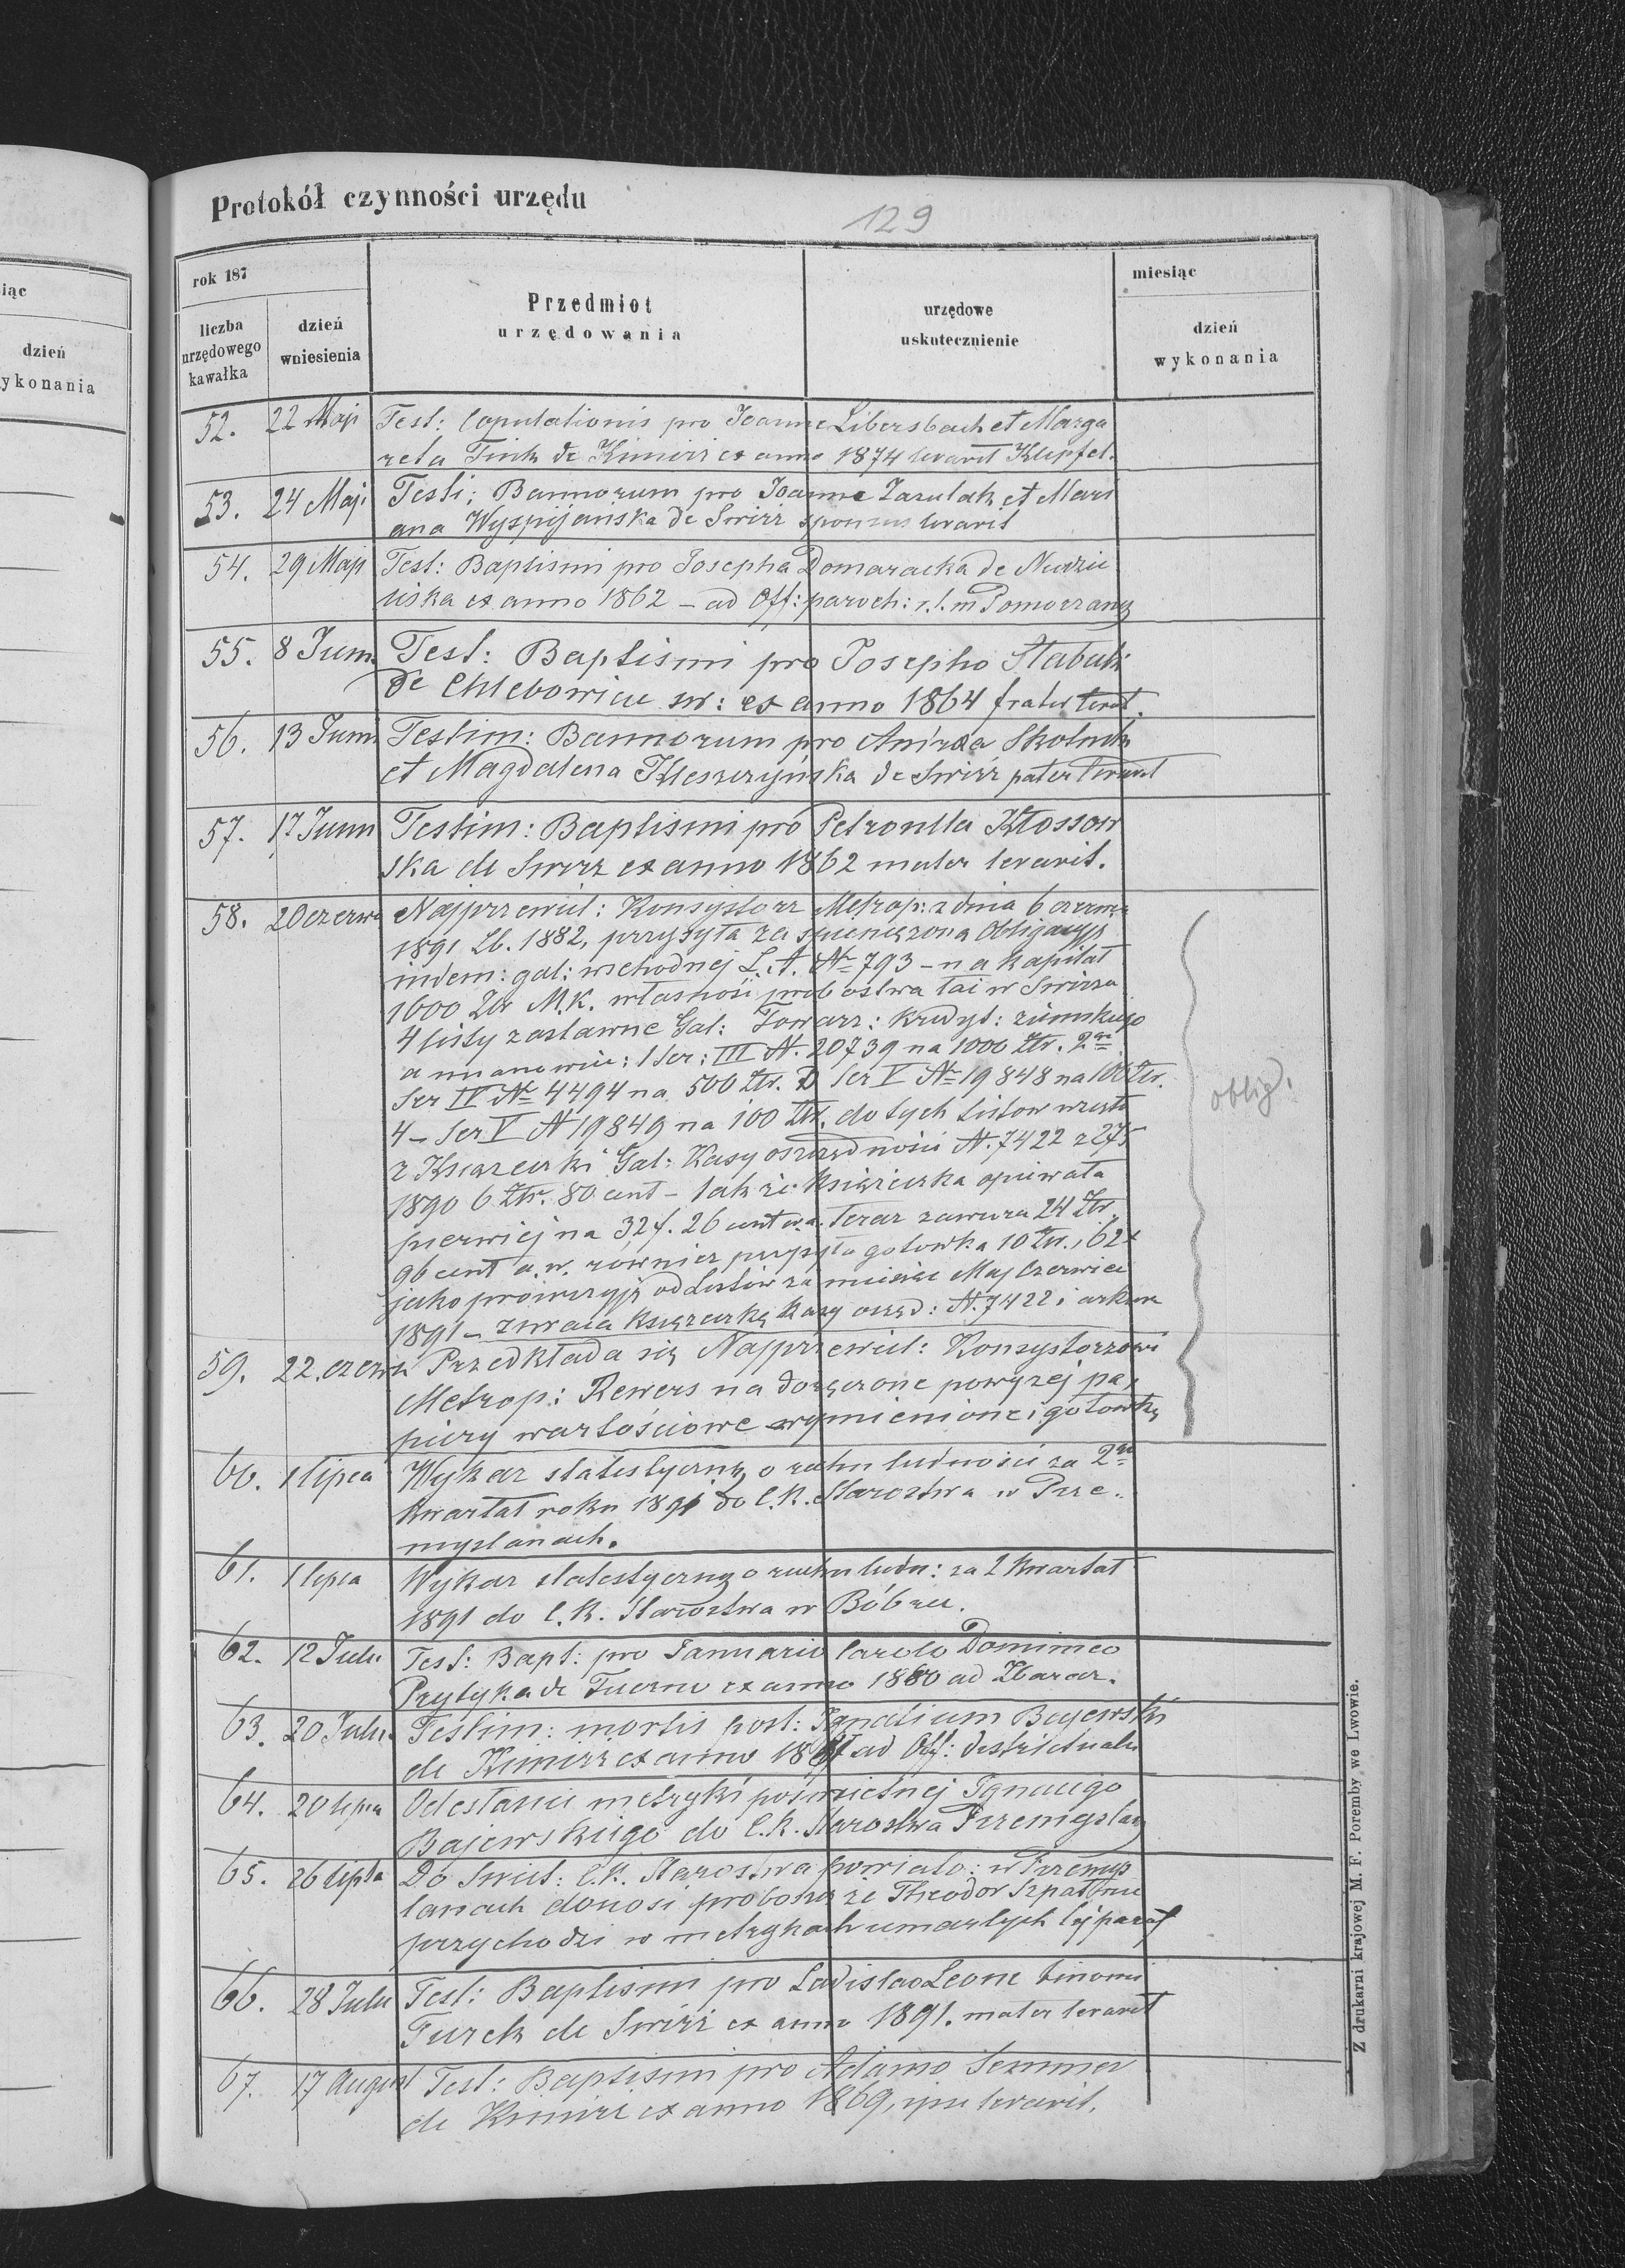 Protokół czynności urzędu
129
rok 187
miesiąc
liczba urzędowego kawałka
dzień wniesienia
Przedmiot urzędowania
urzędowe uskutecznienie
dzień wykonania
iąc
dzień
ykonania
52. 22 Maji Test: Copulationis pro Joanne Libersbach et Marga
reta Fink de Kimirz ex anno 1874 levavit Klepfel.
53. 24 Maji Testi: Bannorum pro Joanne Zarulak et Mari
ana Wyspijańska de Swirz sponsus levavit
54. 29 Maji Test: Baptismi pro Josepha Domaracka de
ex anno 1862 – ad Off: paroch: r. l. in Pomorzany
55. 8 Juni Test: Baptismi pro Josepho Stabuth
de Chlebowice św: ex anno 1864 frater levat.
56. 13 Juni Testim: Bannorum pro Andrea Skolnik
et Magdalena Kleszczyńska de Swirz pater levavit
57. 17 Juni Testim: Baptismi pro Petronlla Kłossow
ska de Swirz ex anno 1862 mater levavit.
58. 20 czerwc Najprzewiel: Konsystorz Metrop: z dnia 6 czerwca
1891 Lb. 1882, przysyła za spieniężoną Obligacyję
indem: gal: wschodniej L. A. Nr 793 – na kapitał
1600 Złr M.K. własność probostwa łać w Swirzu
4 listy zastawne Gal: Towarz: Kredyt: ziemskiego
a mianowicie: 1 Ser: III N. 20739 na 1000 Złr. 2re
Ser IV Nr 4494 na 500 Złr. 3 Ser V Nr 19848 na 100 Złr.
4 – Ser V N 19849 na 100 Złr. do tych listów
z Książeczki Gal: Kasy oszczędności N. 7422 z 27/5
1890 6 Złr. 80 cent – także książeczka opiewała
pierwiej na 32 f. 26 cent w.a. Teraz zawiera 24 Złr.
96 cent a. w. również przysyła gotówką 10 Złr. i 62 x
jako prowizyję od Listów za miesiąc Maj Czerwiec
1891 – zwraca książeczkę Kasy oszęd: N. 7422 i arkusz
oblig:
59. 22. czerwca Przedkłada się Najprzewiel: Konsystorzowi
Metrop: Rewers na doręczone powyżej pa,
piery wartościowe wymienione i gotówkę
60. 1 lipca Wykaz statistyczny o ruchu ludności za 2gi
kwartał roku 1891 do C.K. Starostwa w Prze-
myslanach.
61. 1 lipca Wykaz statestyczny o ruchu ludn: za 2 kwartał
1891 do C. K. Starostwa w Bóbrce.
62. 12 Julii Test: Bapt: pro Januario Carolo Dominico
Przytyka de Tuczne ex anno 1880 ad Zbaraz.
63. 20 Julii Testim: mortis post: Ignatium Bajewski
de Kimirz ex anno ad Off: districtuale
64. 20 lipca Odesłanie metryki pośmietnej Ignacego
Bajewskiego do C. K. Starostwa Przemyslany
65. 26 lipca Do Swiet: C. K. Starostwa powiato: w Przemys
lanach donosi proboszcz że Theodor Szpat nie
przychodzi w metrykach umarłych tej paraf
66. 28 Julii Test: Baptismi pro Ladislao Leone binomi
Turek de Swirz ex anno 1891. mater levavit
67. 17 August Test: Baptismi pro Adamo Semmer
de Kimirz ex anno 1869, ipse levavit.
Z drukarni krajowej M. F. Poremby we Lwowie.